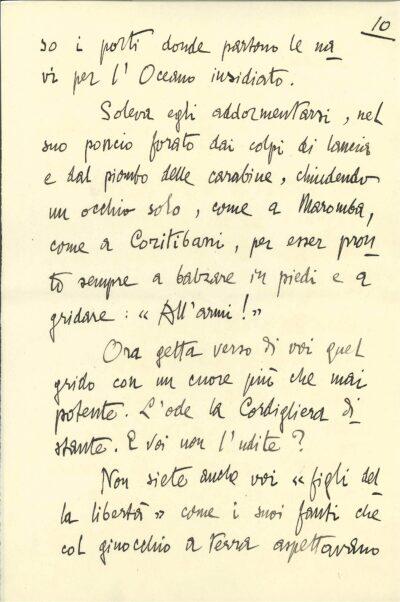 10
so i porti donde partono le na
vi per l'Oceano insidiato.
Soleva egli addormentarsi, nel
suo poncio forato dai colpi di lancia
e dal piombo delle carabine, chiudendo
un occhio solo, come a Maromba,
come a Coritibani, per esser pron
to sempre a balzare in piedi e a
gridare: « All'armi! »
Ora getta verso di voi quel
grido con un cuore più che mai
potente. L'ode la Cordigliera di
stante. E voi non l'udite?
Non siete anche voi « figli del
la libertà » come i suoi fanti che
col ginocchio a terra aspettavano